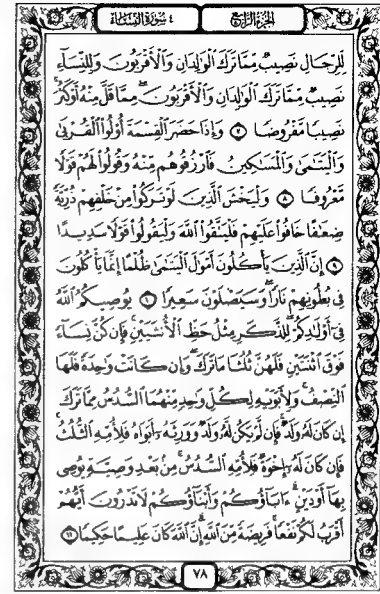 ٤ سورة النساء
الجزء الرابع
لِّلرِّجَالِ نَصِيبٌ مِّمَّا تَرَكَ الْوَالِدَانِ وَالْأَقْرَبُونَ وَلِلنِّسَاءِ
نَصِيبٌ مِّمَّا تَرَكَ الْوَالِدَانِ وَالْأَقْرَبُونَ مِمَّا قَلَّ مِنْهُ أَوْ كَثُرَ
نَصِيبًا مَّفْرُوضًا ٧ وَإِذَا حَضَرَ الْقِسْمَةَ أُوْلُوا الْقُرْبَى
وَالْيَتَامَى وَالْمَسَاكِينُ فَارْزُقُوهُم مِّنْهُ وَقُولُوا لَهُمْ قَوْلًا
مَّعْرُوفًا ٨ وَلْيَخْشَ الَّذِينَ لَوْ تَرَكُوا مِنْ خَلْفِهِمْ ذُرِّيَّةً
ضِعَافًا خَافُوا عَلَيْهِمْ فَلْيَتَّقُوا اللَّهَ وَلْيَقُولُوا قَوْلًا سَدِيدًا
٩ إِنَّ الَّذِينَ يَأْكُلُونَ أَمْوَالَ الْيَتَامَى ظُلْمًا إِنَّمَا يَأْكُلُونَ
فِي بُطُونِهِمْ نَارًا وَسَيَصْلَوْنَ سَعِيرًا ١٠ يُوصِيكُمُ اللَّهُ
فِي أَوْلَادِكُمْ لِلذَّكَرِ مِثْلُ حَظِّ الْأُنثَيَيْنِ فَإِن كُنَّ نِسَاءً
فَوْقَ اثْنَتَيْنِ فَلَهُنَّ ثُلُثَا مَا تَرَكَ وَإِن كَانَتْ وَاحِدَةً فَلَهَا
النِّصْفُ وَلِأَبَوَيْهِ لِكُلِّ وَاحِدٍ مِّنْهُمَا السُّدُسُ مِمَّا تَرَكَ
إِن كَانَ لَهُ وَلَدٌ فَإِن لَّمْ يَكُن لَّهُ وَلَدٌ وَوَرِثَهُ أَبَوَاهُ فَلِأُمِّهِ الثُّلُثُ
فَإِن كَانَ لَهُ إِخْوَةٌ فَلِأُمِّهِ السُّدُسُ مِن بَعْدِ وَصِيَّةٍ يُوصِي
بِهَا أَوْ دَيْنٍ آبَاؤُكُمْ وَأَبْنَاؤُكُمْ لَا تَدْرُونَ أَيُّهُمْ
أَقْرَبُ لَكُمْ نَفْعًا فَرِيضَةً مِّنَ اللَّهِ إِنَّ اللَّهَ كَانَ عَلِيمًا حَكِيمًا ١١
٧٨